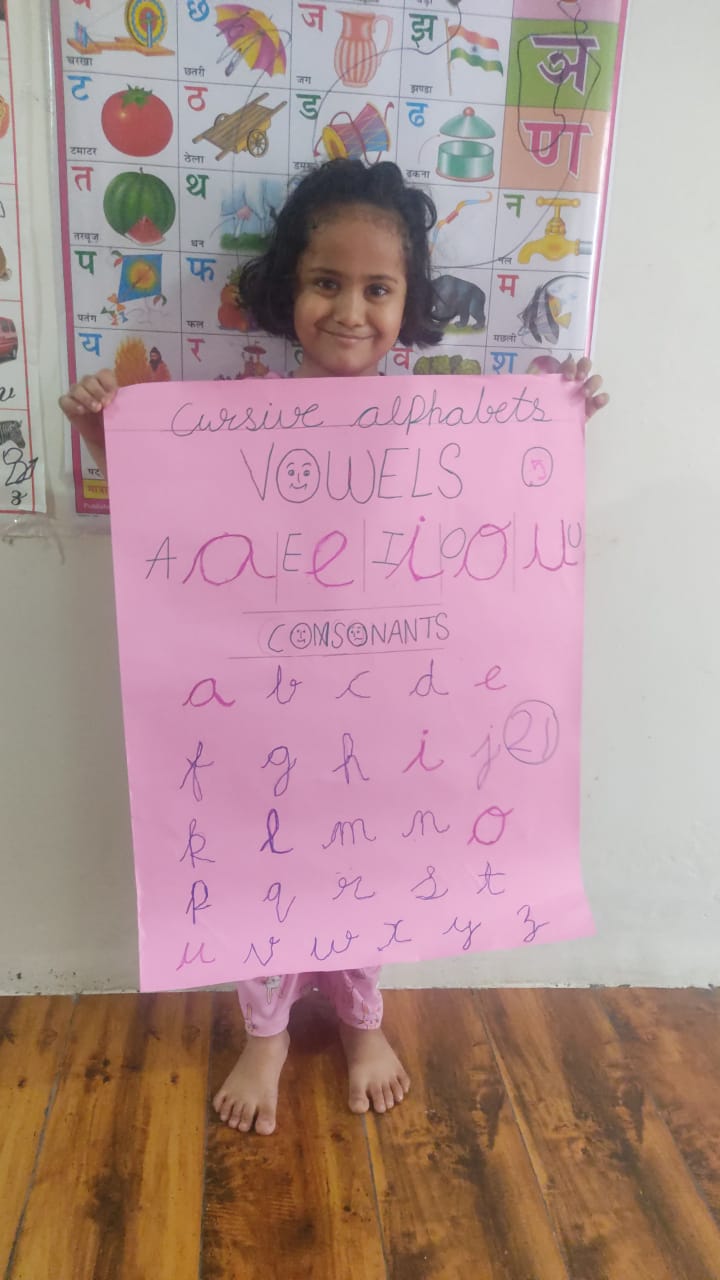 च छ ज झ ञ
चरखा छतरी जग झण्डा
ट ठ ड ढ ण
टमाटर ठेला ढकना
त थ न
तरबूज थन नल
प फ म
पतंग फल मछली
य र व श
cursive alphabets
VOWELS 5
A a E e I i O o u U
CONSONANTS
a b c d e
f g h i j 21
k l m n o
p q r s t
u v w x y z